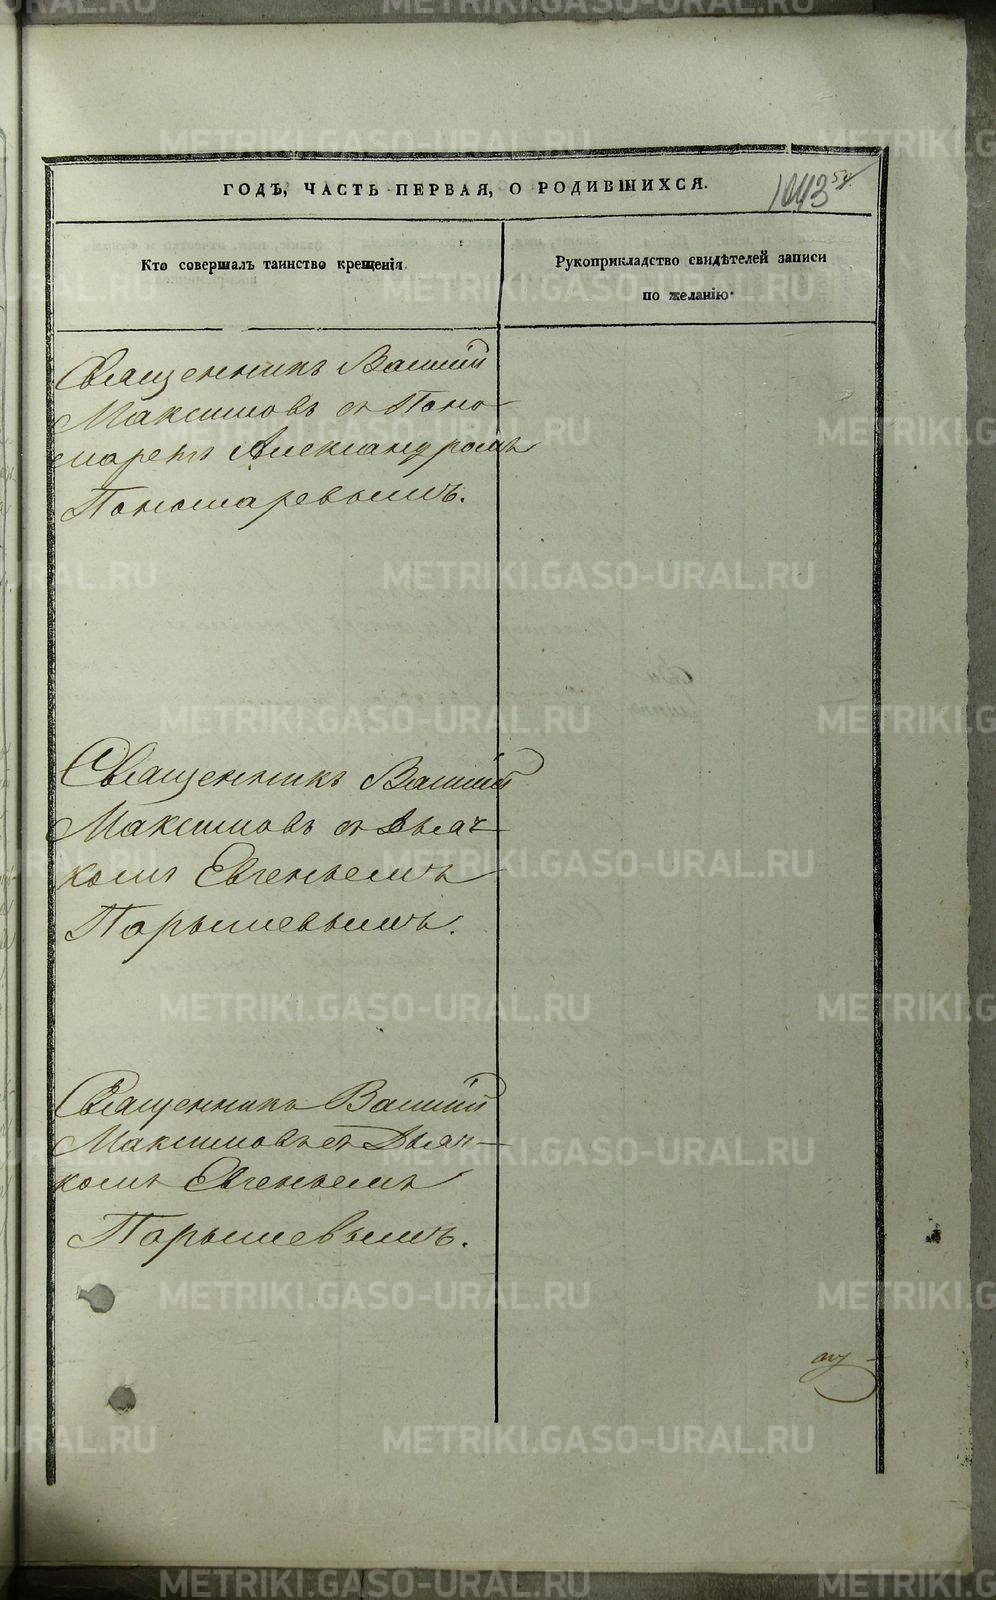 ГОДЪ, ЧАСТЬ ПЕРВАЯ, О РОДИВШИХСЯ.
1043
Кто совершалъ таинство крещенія.
Рукоприкладство свидѣтелей записи
по желанію.
Священникъ Василій
Максимовъ съ Поно-
маремъ Александромъ
Пономаревымъ.
Священникъ Василій
Максимовъ съ Дьяч-
комъ Евгеньемъ
Парышевымъ.
Священникъ Василій
Максимовъ съ Дьяч-
комъ Евгеньемъ
Парышевымъ.
METRIKI.GASO-URAL.RU